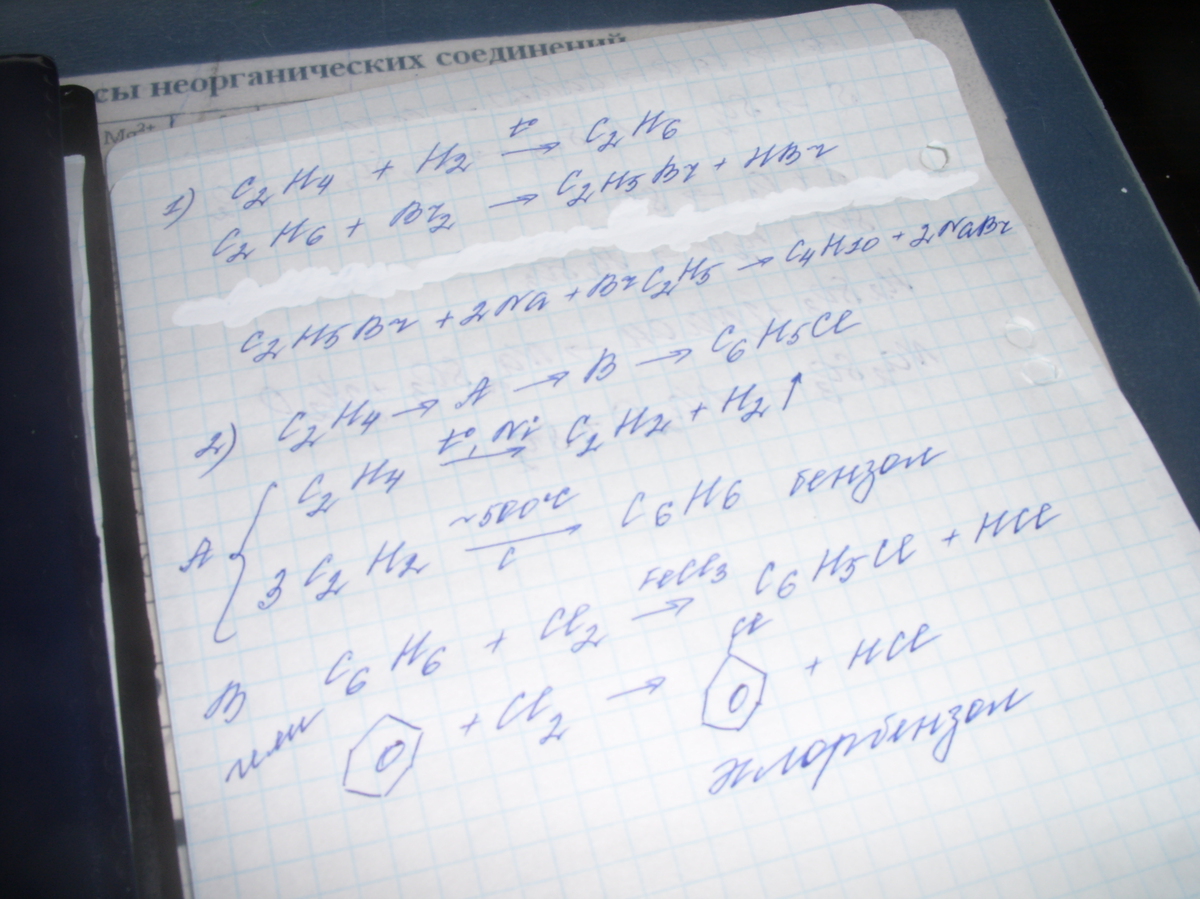 сы неорганических соединений
Mg²⁺
1) C₂H₄ + H₂ →(t°) C₂H₆
C₂H₆ + Br₂ → C₂H₅Br + HBr
C₂H₅Br + 2Na + BrC₂H₅ → C₄H10 + 2NaBr
2) C₂H₄ → A → B → C₆H₅Cl
A { C₂H₄ →(t°, Ni) C₂H₂ + H₂↑
3C₂H₂ →(~500°C, C) C₆H₆ бензол
B C₆H₆ + Cl₂ →(FeCl₃) C₆H₅Cl + HCl
или + Cl₂ → Cl + HCl
хлорбензол